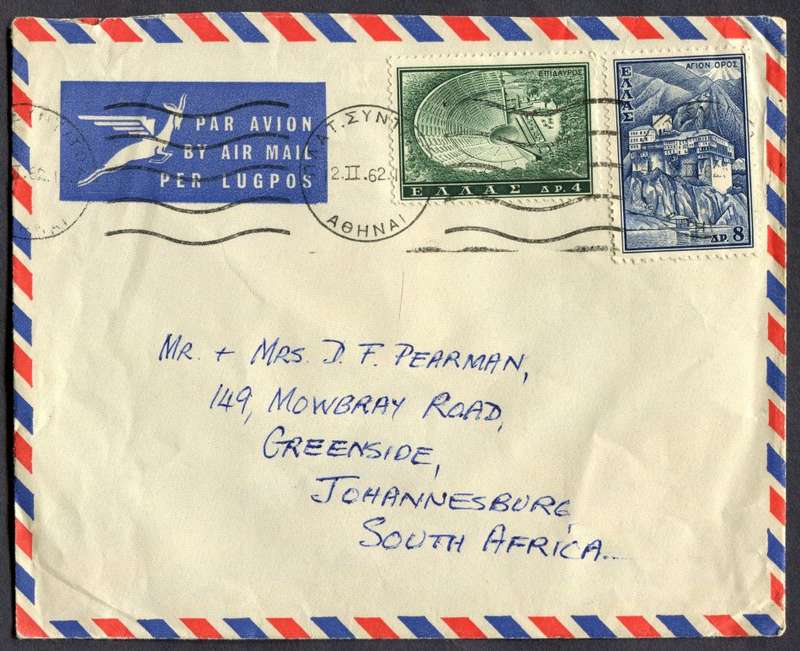 PAR AVION
BY AIR MAIL
PER LUGPOS
ΑΤ. ΣΥΝΤ
2.II.62.
ΑΘΗΝΑΙ
ΕΠΙΔΑΥΡΟΣ
ΕΛΛΑΣ ΔΡ. 4
ΑΓΙΟΝ ΟΡΟΣ
ΕΛΛΑΣ
ΔΡ. 8
MR. + MRS. D. F. PEARMAN,
149, MOWBRAY ROAD,
GREENSIDE,
JOHANNESBURG,
SOUTH AFRICA.